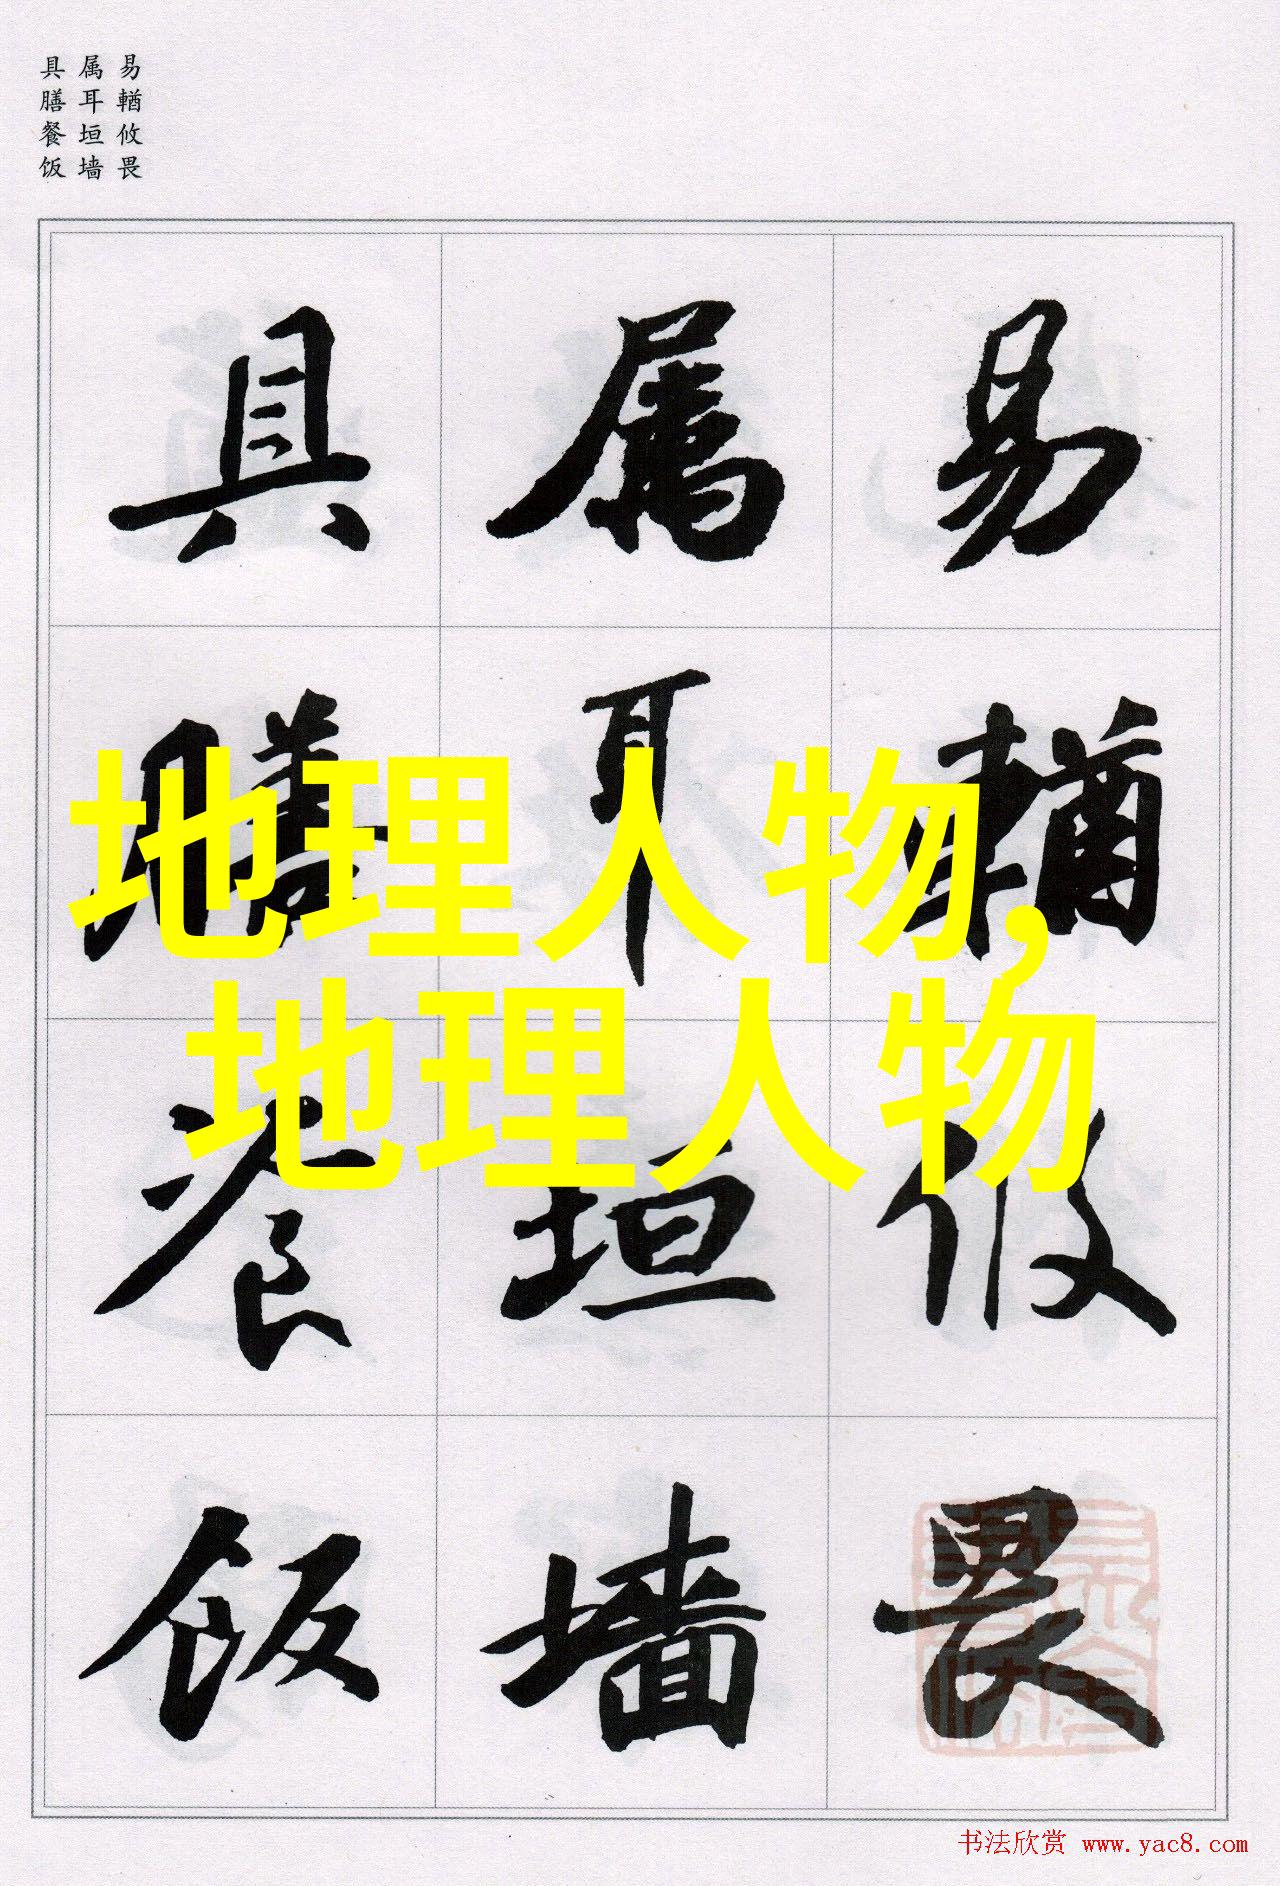 易輶攸畏
属耳垣墙
具膳餐饭
易輶攸畏
属耳垣墙
具膳飡饭
地理人物,
地理人物
书法欣赏 www.yac8.com